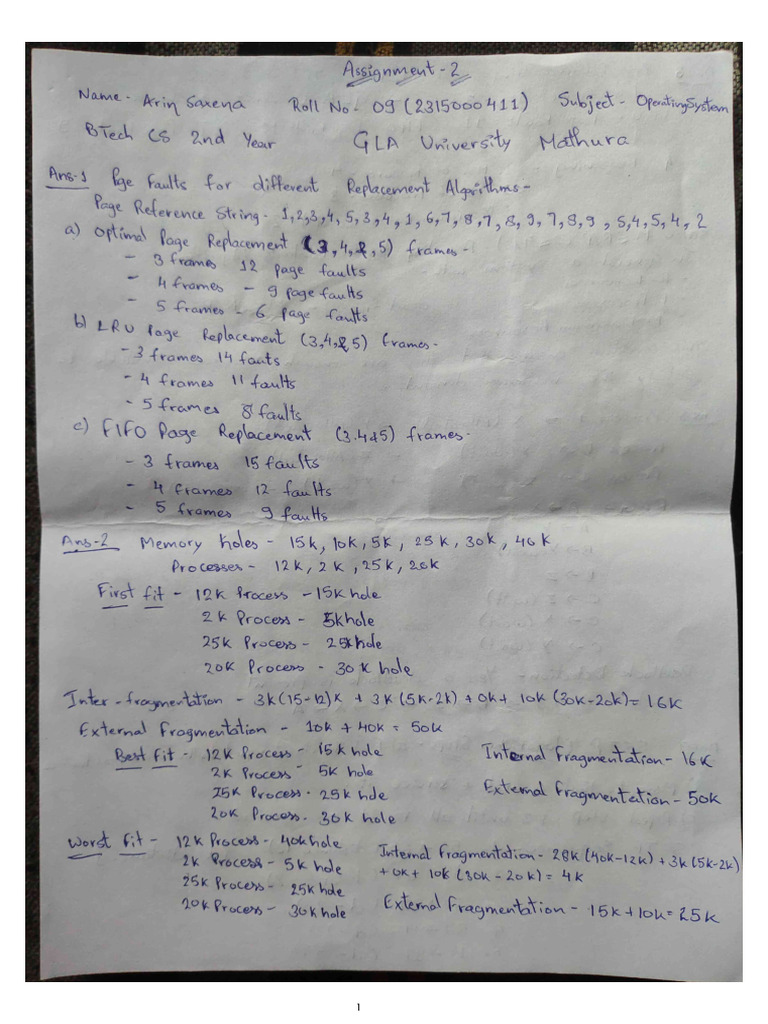 Assignment-2
Name- Arin Saxena Roll No- 09 (2315000411) Subject- Operating System
BTech CS 2nd Year GLA University Mathura
Ans-1 Page Faults for different Replacement Algorithms-
Page Reference String- 1,2,3,4,5,3,4,1,6,7,8,7,8,9,7,8,9,5,4,5,4,2
a) Optimal Page Replacement (3,4,&,5) frames-
- 3 frames 12 page faults
- 4 frames - 9 page faults
- 5 frames - 6 page faults
b) LRU Page Replacement (3,4,&5) frames-
- 3 frames 14 fauts
- 4 frames 11 faults
- 5 frames 8 faults
c) FIFO Page Replacement (3.4&5) frames-
- 3 frames 15 faults
- 4 frames 12 faults
- 5 frames 9 faults
Ans-2 Memory holes - 15k, 10k, 5k, 25k, 30k, 40k
Processes - 12k, 2k, 25k, 20k
First fit - 12k Process - 15k hole
2k Process - 5k hole
25k Process - 25k hole
20k Process - 30k hole
Inter-fragmentation - 3k(15-12)k + 3k(5k-2k) + 0k + 10k (30k-20k) = 16k
External Fragmentation - 10k + 40k = 50k
Best fit - 12k Process - 15k hole Internal Fragmentation - 16k
2k Process - 5k hole
25k Process - 25k hde External fragmentation - 50k
20k Process - 30k hole
Worst fit - 12k Process - 40k hole Internal Fragmentation - 28k (40k-12k) + 3k (5k-2k)
2k Process - 5k hole + 0k + 10k (30k - 20k) = 4k
25k Process - 25k hole
20k Process - 30k hole External Fragmentation - 15k + 10k = 25k
1